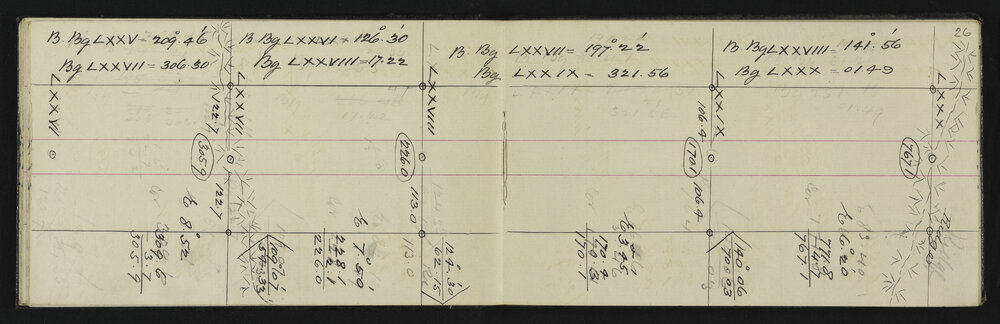 26
B. Bg LXXV = 209°.46'
Bg LXXVII = 306.50
B. Bg LXXVI = 126°.30'
Bg LXXVIII = 17.22
B. Bg LXXVII = 197°.22'
Bg LXXIX = 321.56
B Bg LXXVIII = 141°.56'
Bg LXXX = 01.49
LXXVI
122.7
LXXVII
305.9
122.7
6 8°.52'
3.7
305.9
LXXVIII
226.0
113.0
6 7°.50'
228.1
226.0
113.0
124°.30'
62.15
LXXIX
106.4
170.1
106.4
6 3°.45'
170.4
.3
170.1
140°.06'
70.03
LXXX
767.1
6 6°.20'
767.1